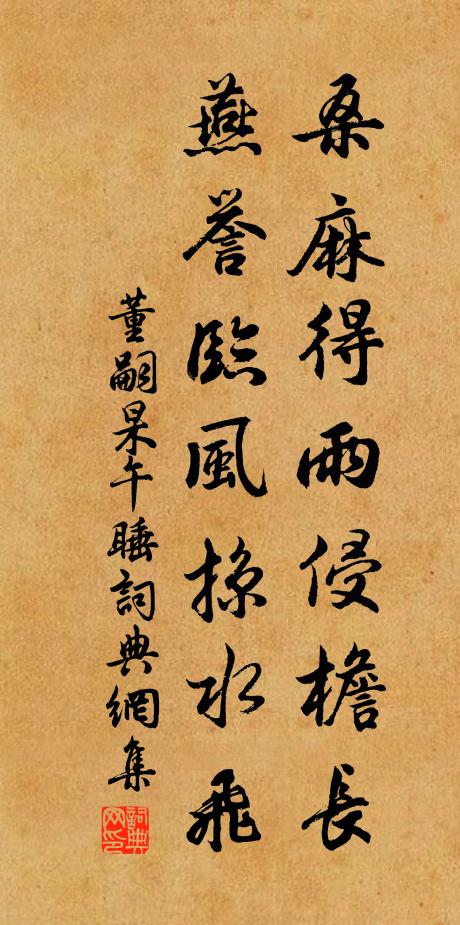 桑麻得雨侵檐長
燕誉臨風掠水飛
董嗣杲午睡詞典網集
詞典網印